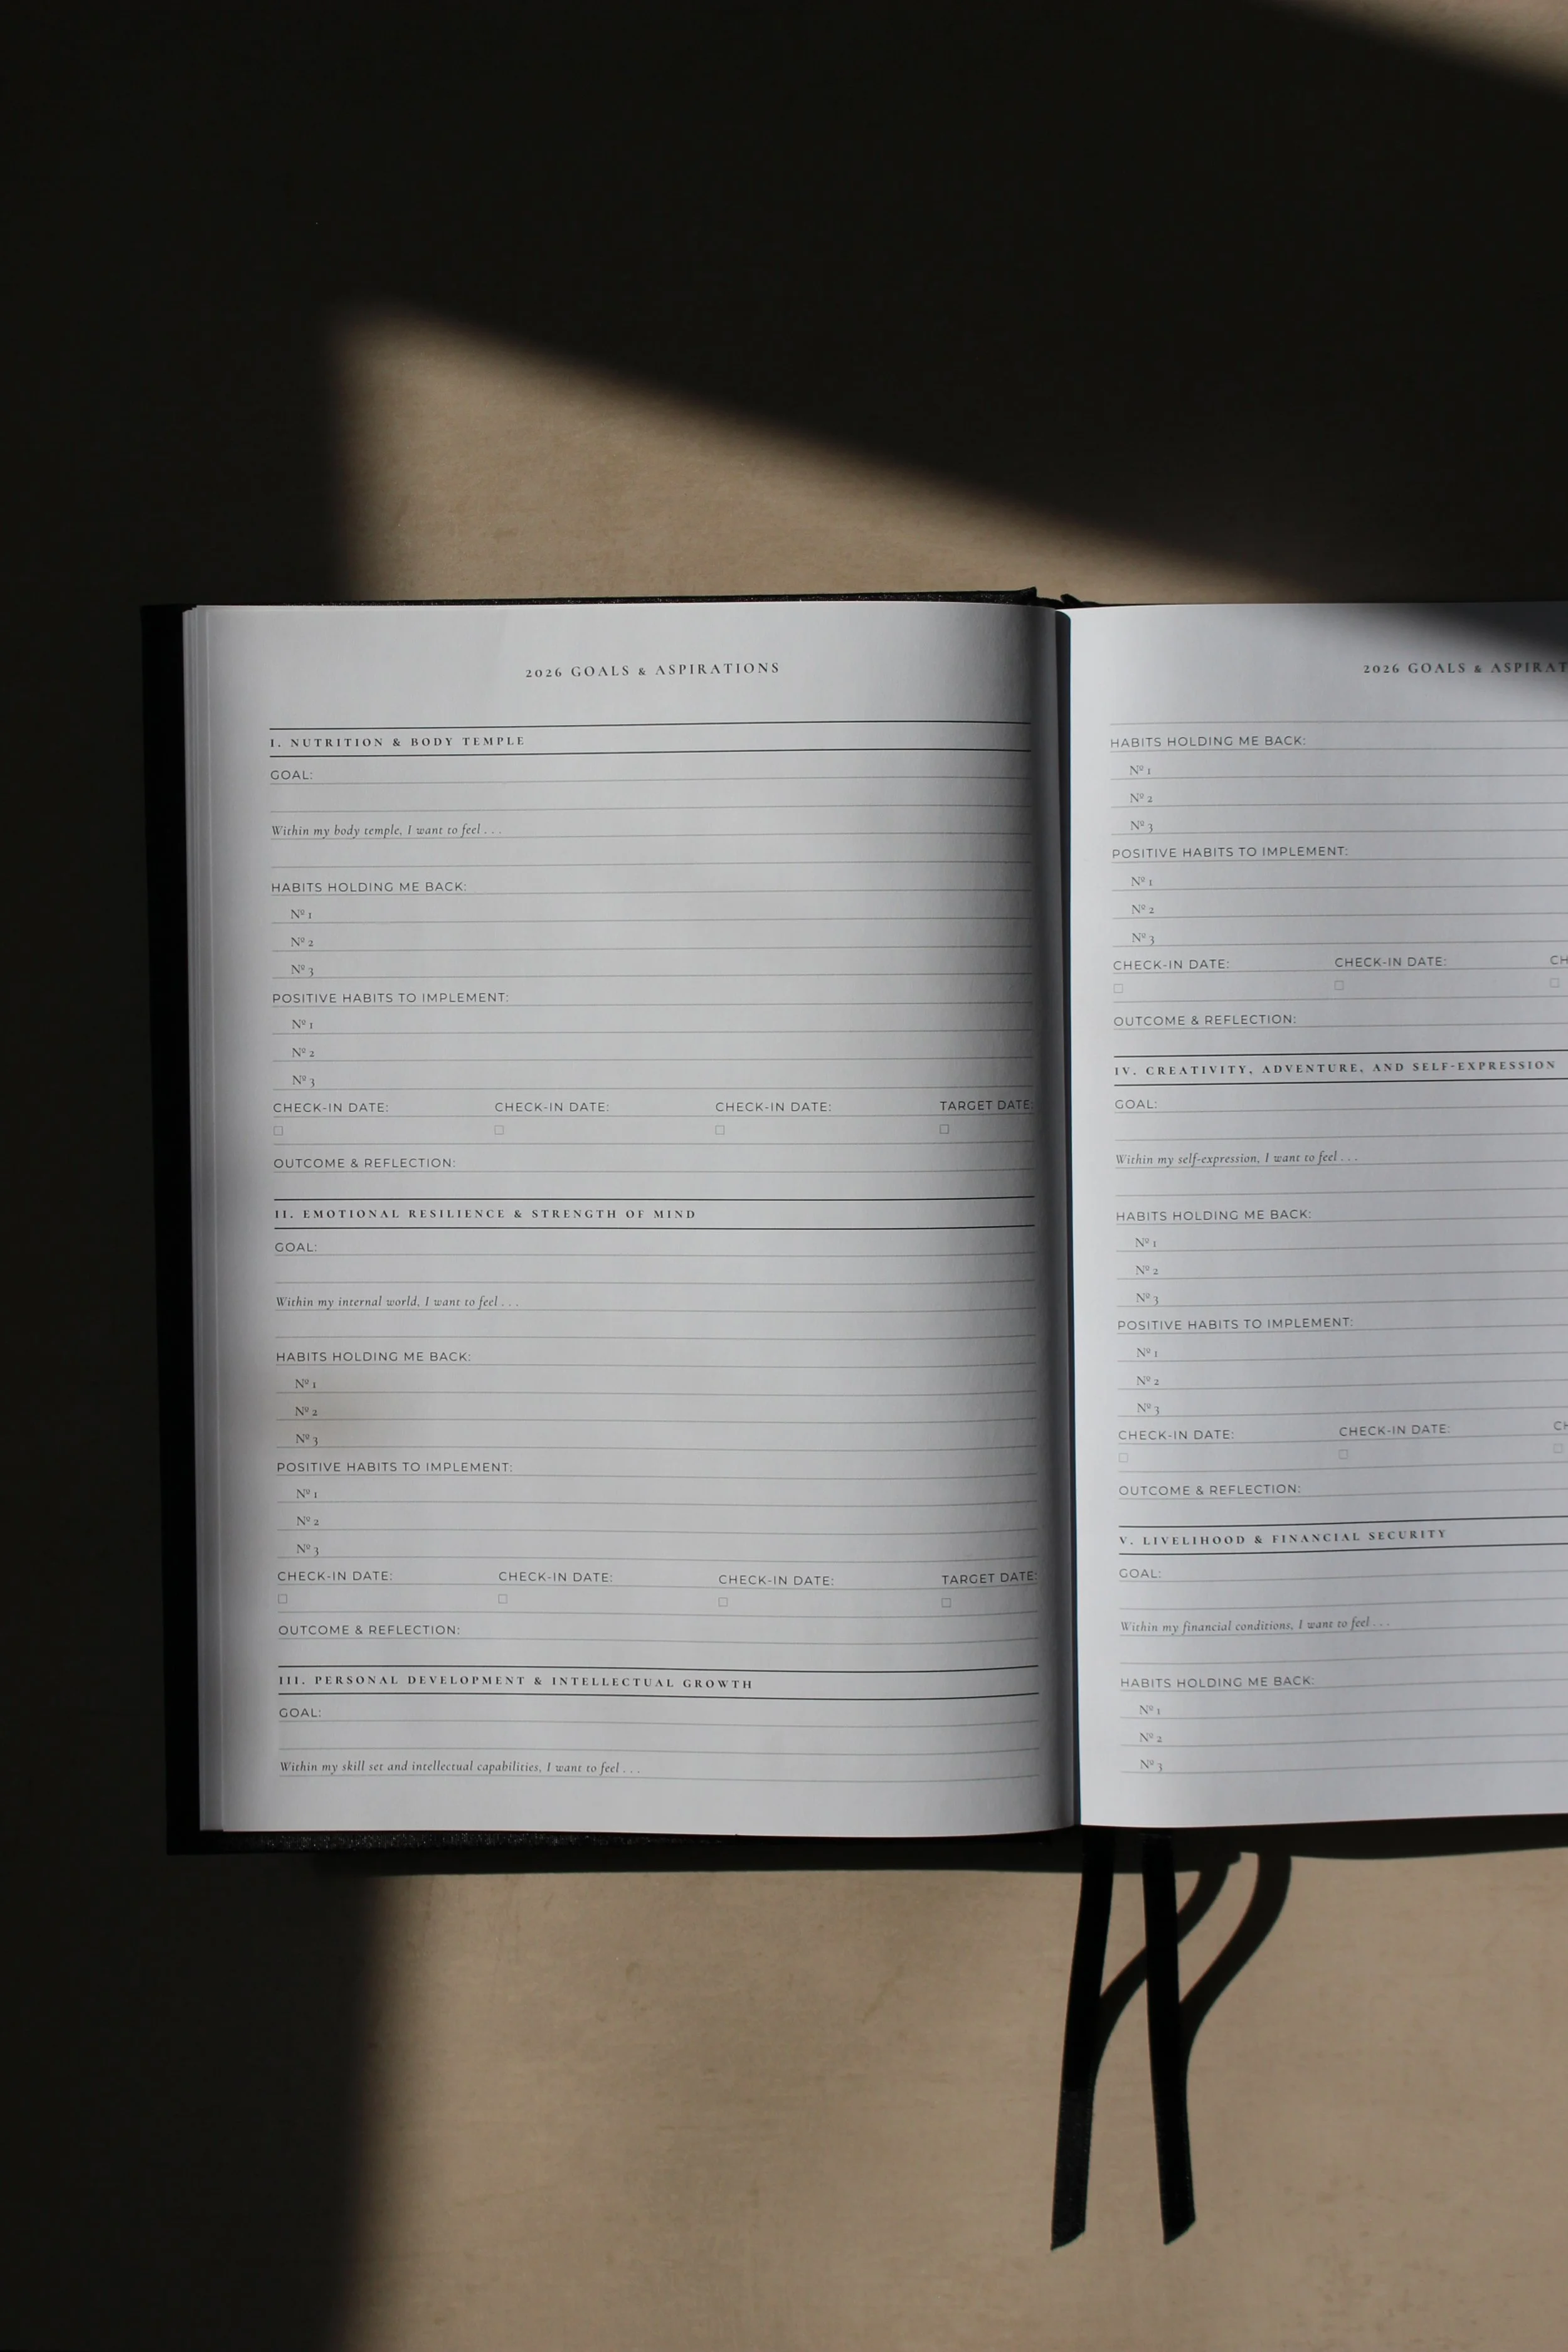 2026 GOALS & ASPIRATIONS
I. NUTRITION & BODY TEMPLE
GOAL:
Within my body temple, I want to feel . . .
HABITS HOLDING ME BACK:
Nº 1
Nº 2
Nº 3
POSITIVE HABITS TO IMPLEMENT:
Nº 1
Nº 2
Nº 3
CHECK-IN DATE: CHECK-IN DATE: CHECK-IN DATE: TARGET DATE:
OUTCOME & REFLECTION:
II. EMOTIONAL RESILIENCE & STRENGTH OF MIND
GOAL:
Within my internal world, I want to feel . . .
HABITS HOLDING ME BACK:
Nº 1
Nº 2
Nº 3
POSITIVE HABITS TO IMPLEMENT:
Nº 1
Nº 2
Nº 3
CHECK-IN DATE: CHECK-IN DATE: CHECK-IN DATE: TARGET DATE:
OUTCOME & REFLECTION:
III. PERSONAL DEVELOPMENT & INTELLECTUAL GROWTH
GOAL:
Within my skill set and intellectual capabilities, I want to feel . . .
2026 GOALS & ASPIRAT
HABITS HOLDING ME BACK:
Nº 1
Nº 2
Nº 3
POSITIVE HABITS TO IMPLEMENT:
Nº 1
Nº 2
Nº 3
CHECK-IN DATE: CHECK-IN DATE: CH
OUTCOME & REFLECTION:
IV. CREATIVITY, ADVENTURE, AND SELF-EXPRESSION
GOAL:
Within my self-expression, I want to feel . . .
HABITS HOLDING ME BACK:
Nº 1
Nº 2
Nº 3
POSITIVE HABITS TO IMPLEMENT:
Nº 1
Nº 2
Nº 3
CHECK-IN DATE: CHECK-IN DATE: CH
OUTCOME & REFLECTION:
V. LIVELIHOOD & FINANCIAL SECURITY
GOAL:
Within my financial conditions, I want to feel . . .
HABITS HOLDING ME BACK:
Nº 1
Nº 2
Nº 3